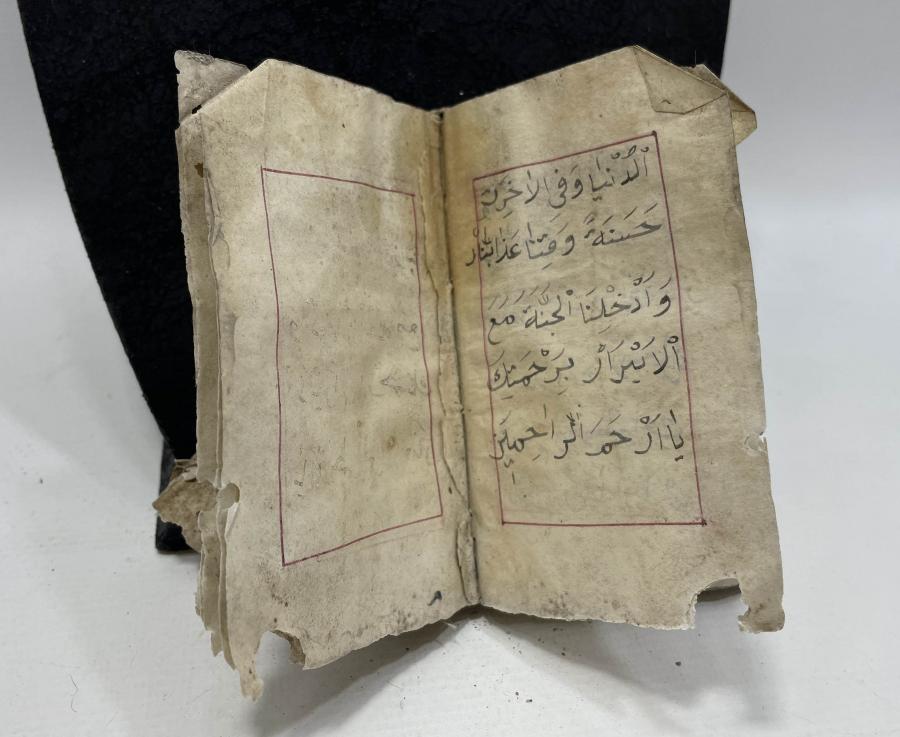 اَلدُّنْيَا وَفِى الْاٰخِرَةِ
حَسَنَةً وَقِنَا عَذَابَنَّارْ
وَاَدْخِلْنَا الْجَنَّةَ مَعَ
اْلاَبْرَارْ بِرَحْمَتِكَ
يَا اَرْحَمَ الرَّاحِمِينَ